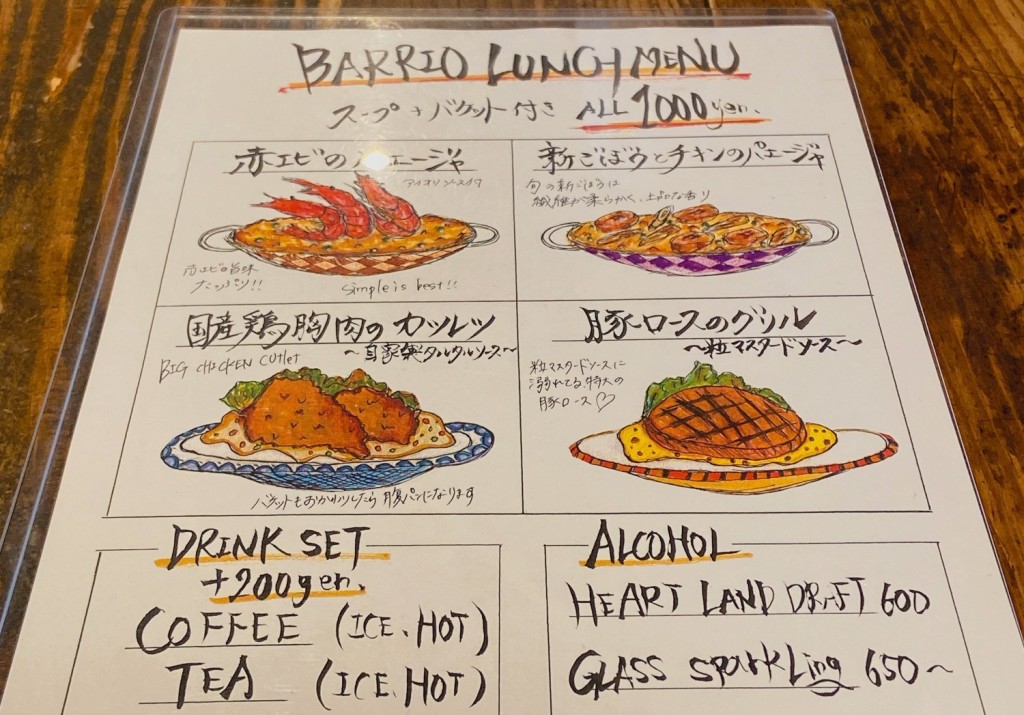 BARRIO LUNCH MENU
スープ+バケット付き ALL 1000yen.
赤エビのパエージャ
アイオリソース
赤エビの旨味
たっぷり!!
simple is best!!
新ごぼうとチキンのパエージャ
旬の新ごぼうは
繊維が柔らかく、上品な香り
国産鶏胸肉のカツレツ
〜自家製タルタルソース〜
BIG CHICKEN CUTlet
バケットもおかわりしたら腹パンになります
豚ロースのグリル
〜粒マスタードソース〜
粒マスタードソースに
溺れてる特大の
豚ロース♡
DRINK SET
+200yen.
COFFEE (ICE、HOT)
TEA (ICE、HOT)
ALCOHOL
HEART LAND DRAFT 600
GLASS sparkLing 650〜